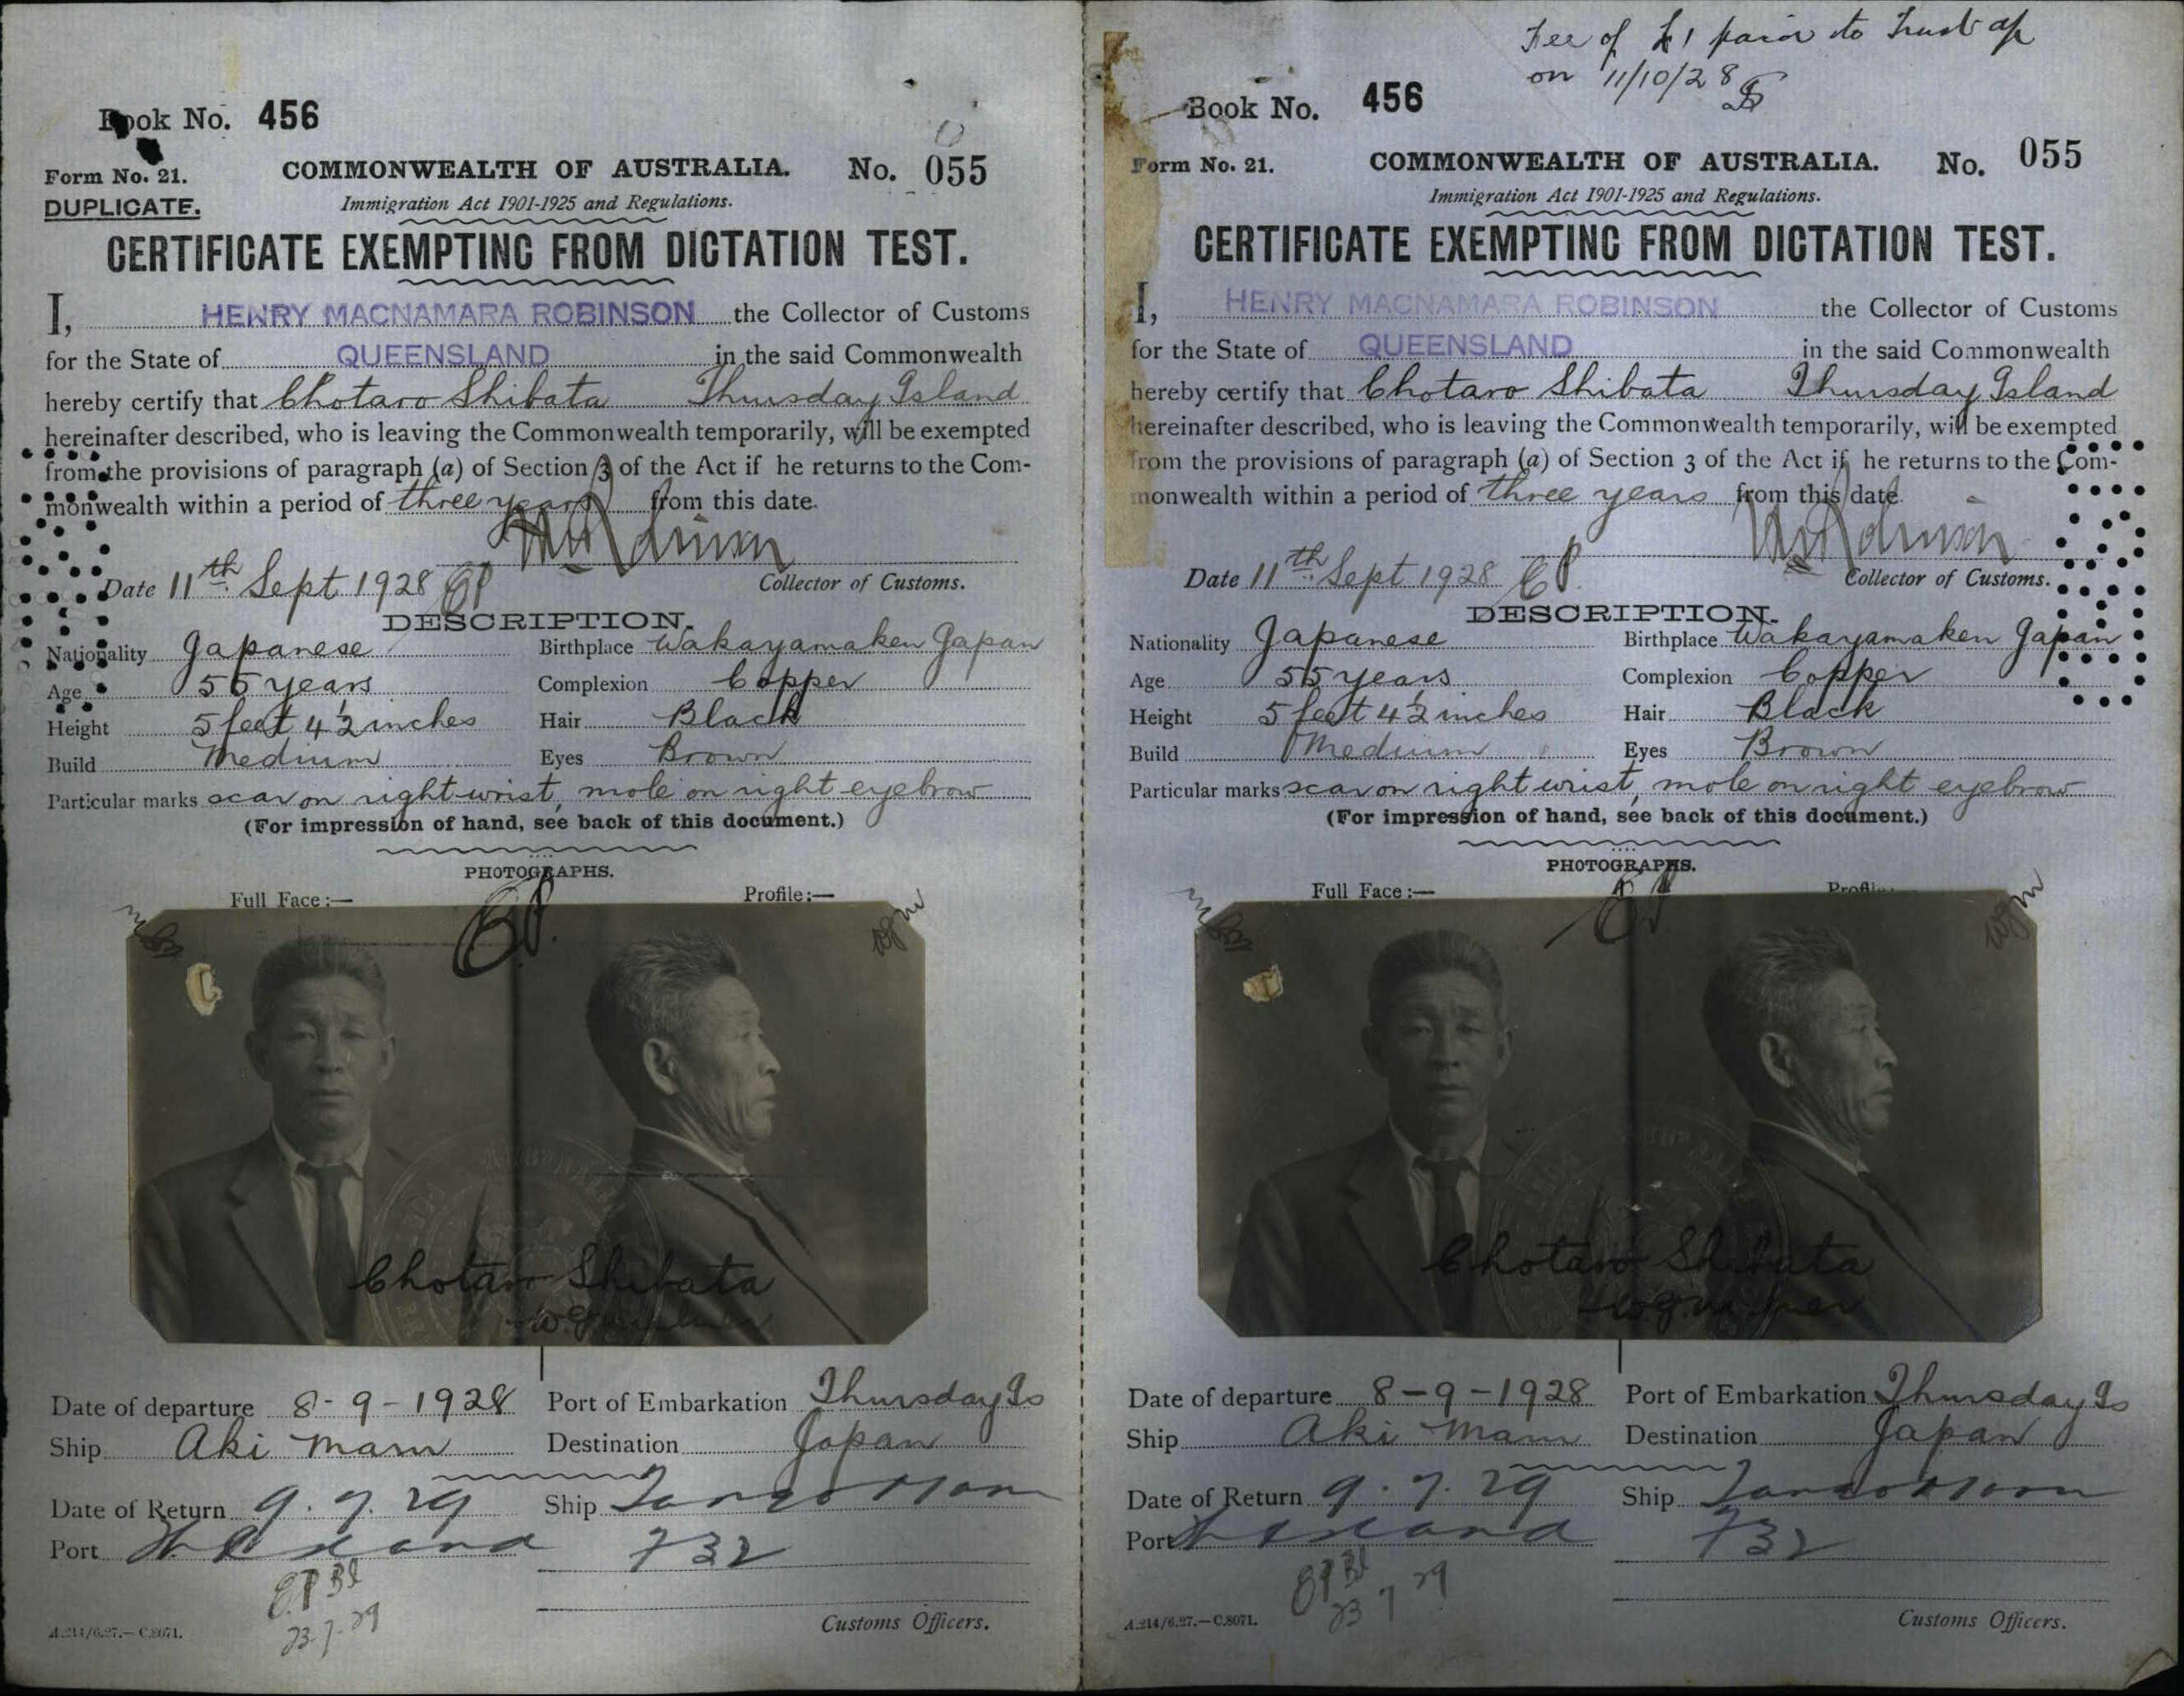 Book No. 456
Form No. 21.
COMMONWEALTH OF AUSTRALIA. No. 055
DUPLICATE.
Immigration Act 1901-1925 and Regulations.
CERTIFICATE EXEMPTING FROM DICTATION TEST.
I, HENRY MACNAMARA ROBINSON the Collector of Customs
for the State of QUEENSLAND in the said Commonwealth
hereby certify that Chotaro Shibata Thursday Island
hereinafter described, who is leaving the Commonwealth temporarily, will be exempted
from the provisions of paragraph (a) of Section 3 of the Act if he returns to the Com-
monwealth within a period of three years from this date.
Date 11th Sept 1928 Collector of Customs.
DESCRIPTION.
Nationality Japanese Birthplace Wakayamaken Japan
Age 55 years Complexion Copper
Height 5 feet 4½ inches Hair Black
Build Medium Eyes Brown
Particular marks scar on right wrist, mole on right eyebrow
(For impression of hand, see back of this document.)
PHOTOGRAPHS.
Full Face:— Profile:—
Chotaro Shibata
Date of departure 8-9-1928 Port of Embarkation Thursday Is
Ship Aki Maru Destination Japan
Date of Return 9.7.29 Ship
Port 732
23.7.29
A.214/6.27.—C.8071. Customs Officers.
Fee of £1 paid to Trust a/c
on 11/10/28
Book No. 456
Form No. 21. COMMONWEALTH OF AUSTRALIA. No. 055
Immigration Act 1901-1925 and Regulations.
CERTIFICATE EXEMPTING FROM DICTATION TEST.
I, HENRY MACNAMARA ROBINSON the Collector of Customs
for the State of QUEENSLAND in the said Commonwealth
hereby certify that Chotaro Shibata Thursday Island
hereinafter described, who is leaving the Commonwealth temporarily, will be exempted
from the provisions of paragraph (a) of Section 3 of the Act if he returns to the Com-
monwealth within a period of three years from this date.
Date 11th Sept 1928 Collector of Customs.
DESCRIPTION.
Nationality Japanese Birthplace Wakayamaken Japan
Age 55 years Complexion Copper
Height 5 feet 4½ inches Hair Black
Build Medium Eyes Brown
Particular marks scar on right wrist, mole on right eyebrow
(For impression of hand, see back of this document.)
PHOTOGRAPHS.
Full Face:— Profile:—
Chotaro Shibata
Date of departure 8-9-1928 Port of Embarkation Thursday Is
Ship Aki Maru Destination Japan
Date of Return 9.7.29 Ship
Port 732
23 7 29
A.214/6.27.—C.8071. Customs Officers.